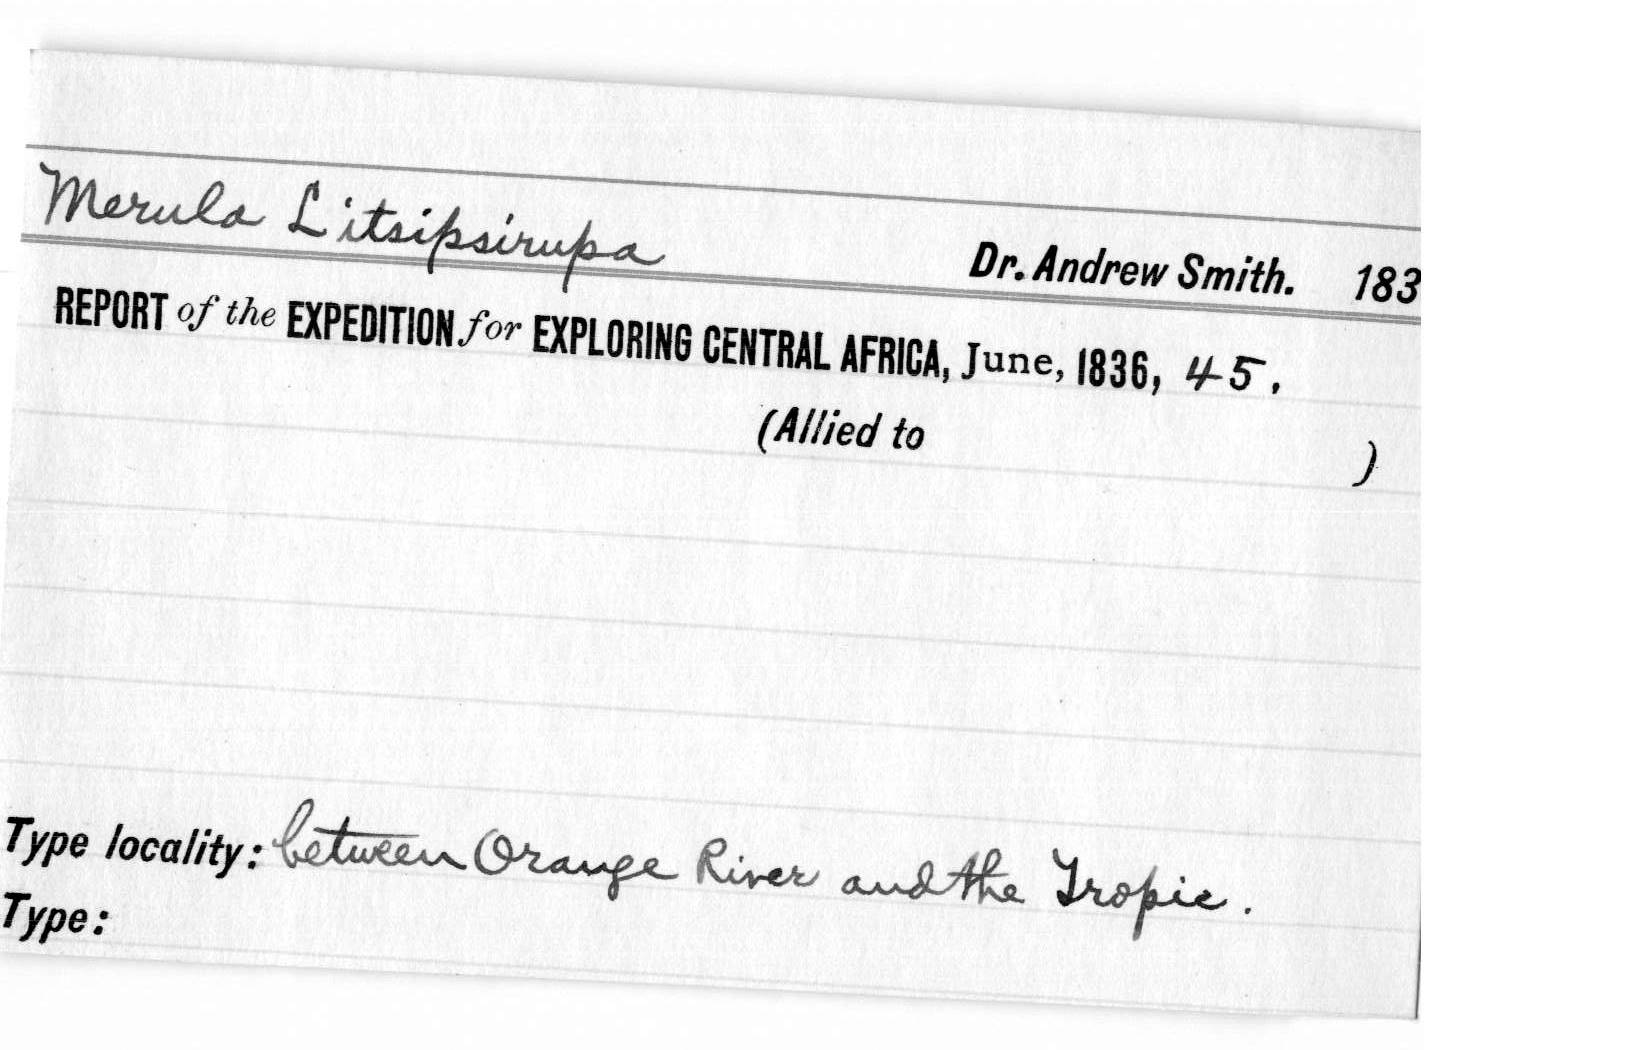 Merula L'itsipsirupa
Dr. Andrew Smith. 183
REPORT of the EXPEDITION for EXPLORING CENTRAL AFRICA, June, 1836, 45.
(Allied to )
Type locality: between Orange River and the Tropic.
Type: